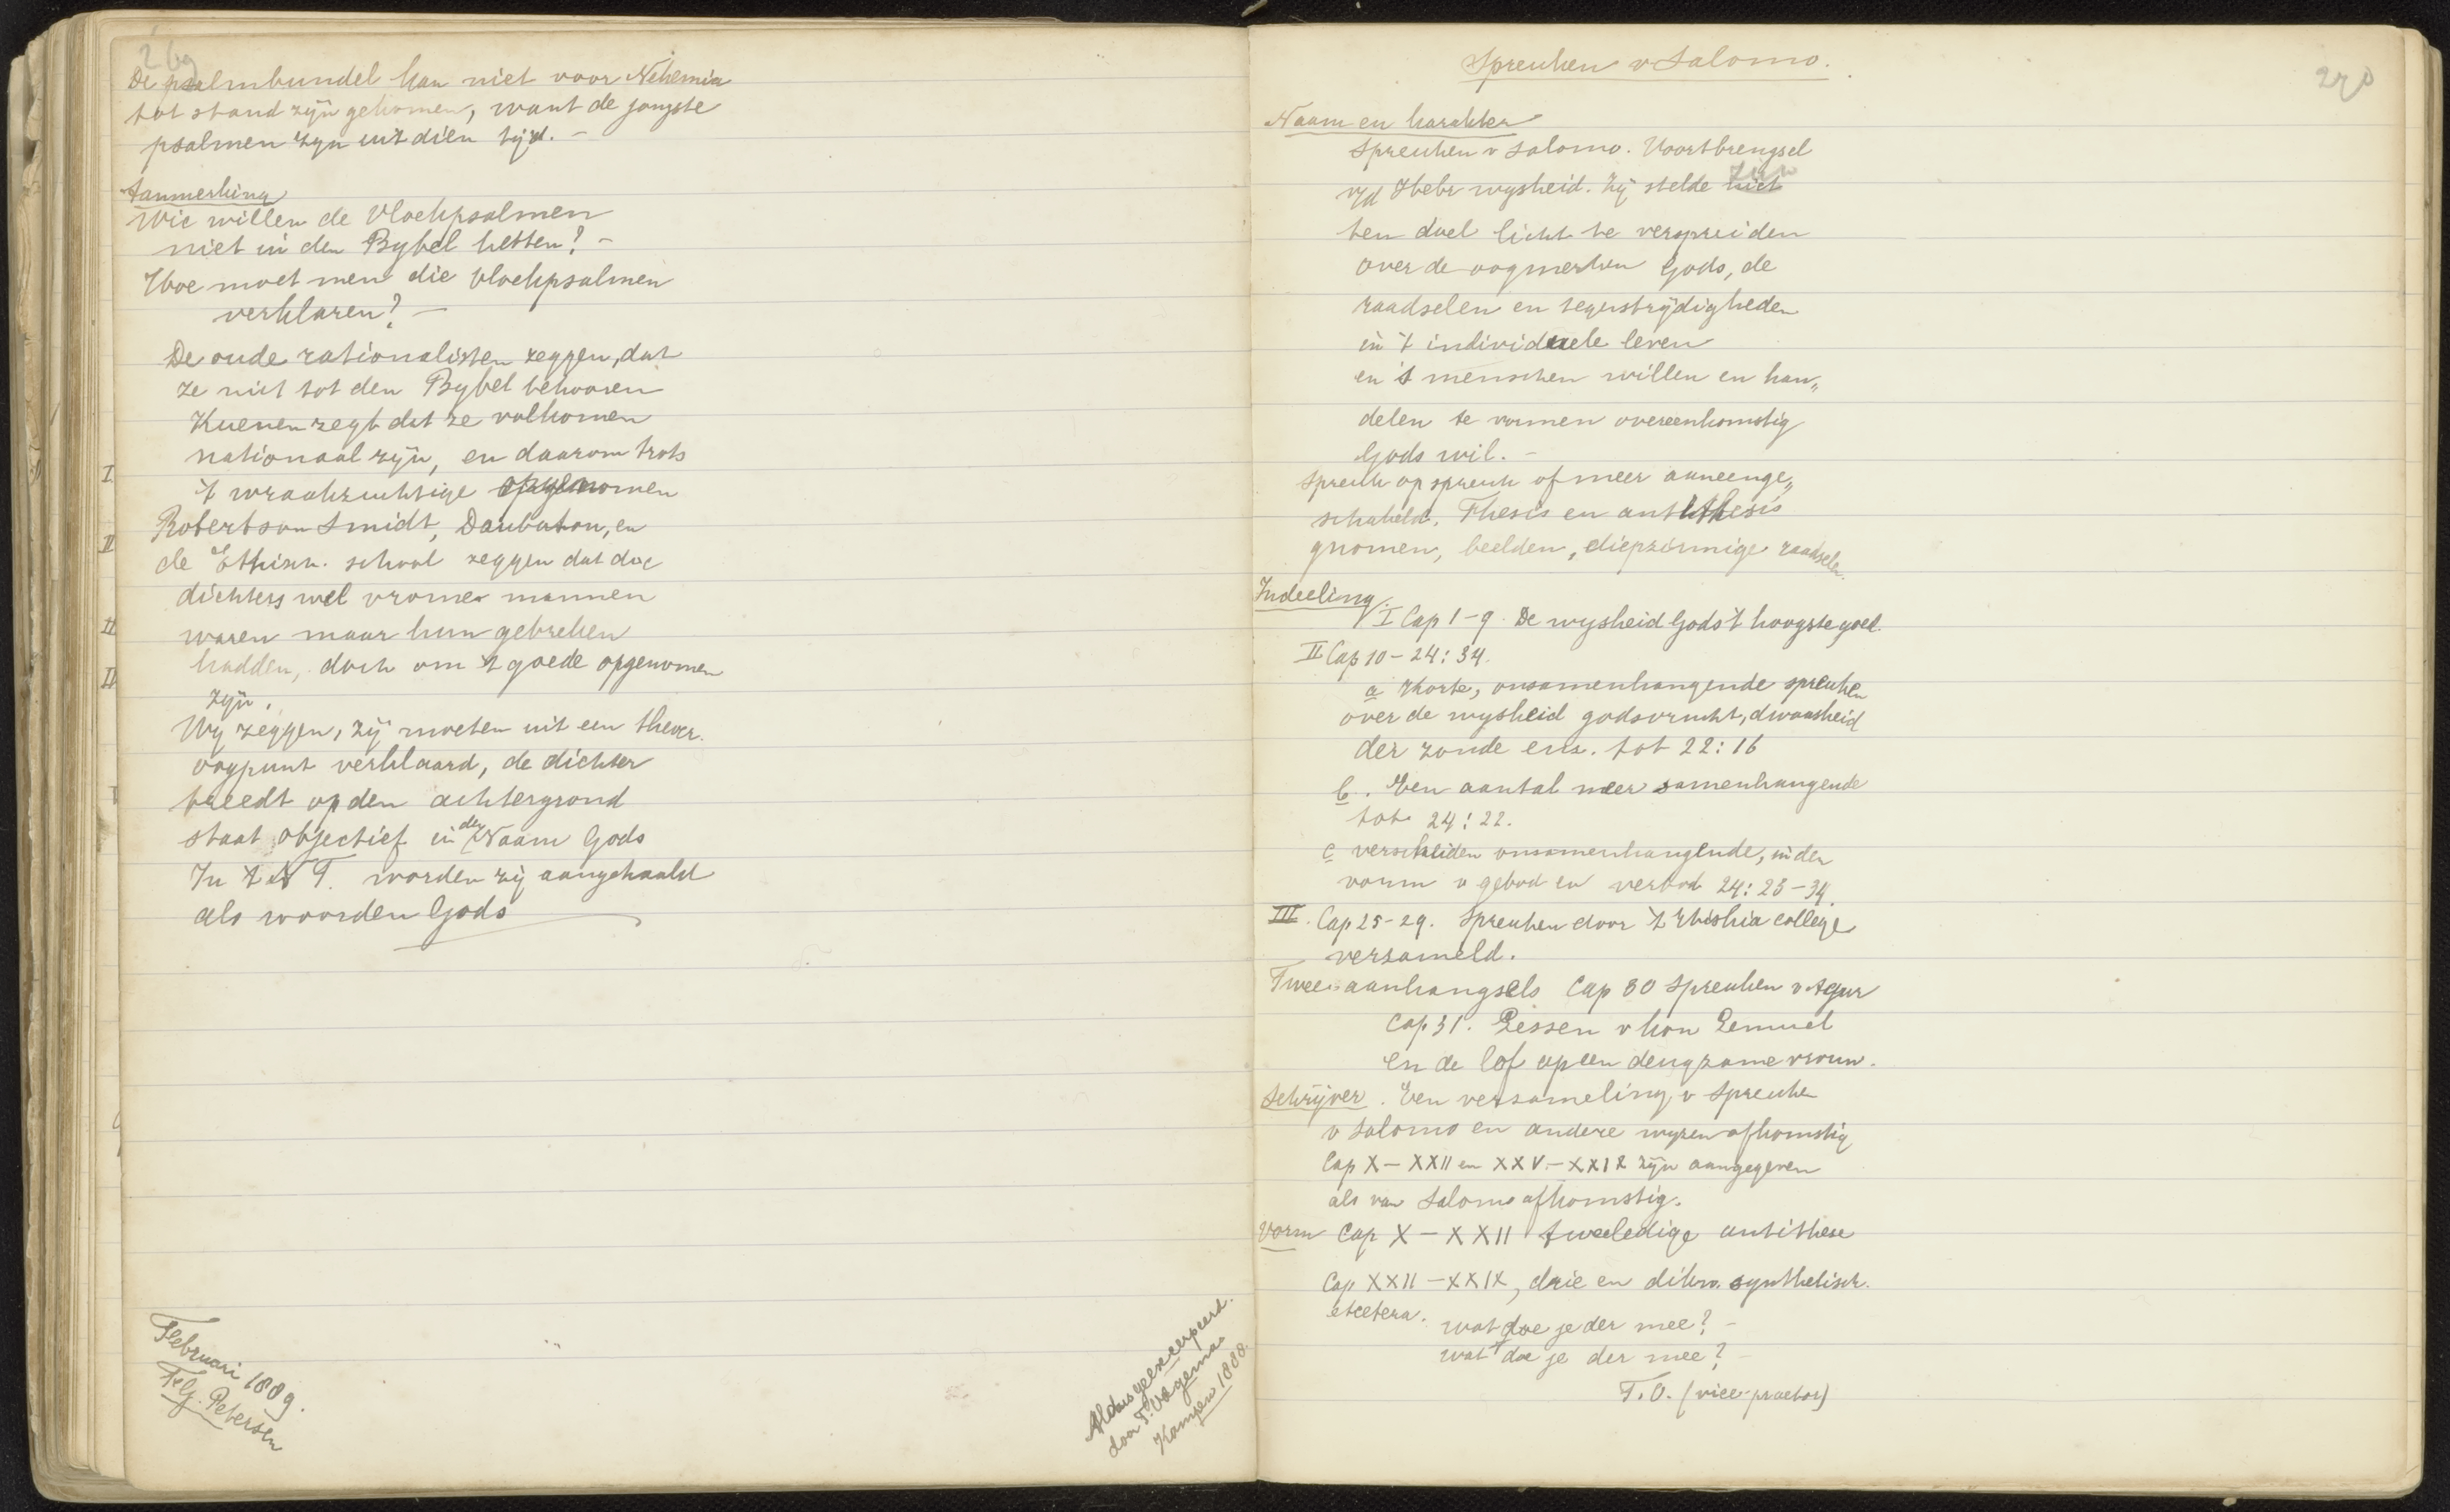 269
De psalmbundel kan niet voor Nehemia
tot stand zijn gekomen, want de jongste
psalmen zyn uit dien tijd. –
Aanmerking
Wie willen de Vloekpsalmen
niet in den Bybel hebben? –
Hoe moet men die vloekpsalmen
verklaren? –
De oude rationalisten zeggen, dat
ze niet tot den Bybel behooren
Kuenen zegt dat ze volkomen
nationaal zijn, en daarom trots
't wraakzuchtige opgenomen
Robertson Smidt, Daubaton, en
de Ethisch. school zeggen dat de
dichters wel vrome mannen
waren maar hun gebreken
hadden, doch om 't goede opgenomen
zijn.
Wy zeggen, zij moeten uit een theocr.
oogpunt verklaard, de dichter
treedt op den achtergrond
staat objectief in den Naam Gods
In 't N T. worden zij aangehaald
als woorden Gods
Februari 1889.
F. G. Petersen
Aldus geëxcerpeerd.
door T. Oegema
Kampen 1888.
270
Spreuken v Salomo.
Naam en karakter
Spreuken v Salomo. Voortbrengsel
v/d Hebr wysheid. Zij stelde zich
ten doel licht te verspreiden
over de oogmerken Gods, de
raadselen en tegenstrijdigheden
in 't individueele leven
en 's menschen willen en han„
delen te vormen overeenkomstig
Gods wil. –
Spreuk op spreuk of meer aaneenge„
schakeld. Thesis en antithesis
gnomen, beelden, diepzinnige raadselen.
Indeeling.
I Cap 1–9. De wysheid Gods 't hoogste goed.
II Cap 10–24:34.
a Korte, onsamenhangende spreuken
over de wysheid godsvrucht, dwaasheid
der zonde enz. tot 22:16
b. Een aantal meer samenhangende
tot 24:22.
c verscheiden onsamenhangende, in den
vorm v gebod en verbod 24:23–34.
III. Cap 25–29. Spreuken door 't Hiskia college
verzameld.
Twee aanhangsels Cap 30 Spreuken v Agur
Cap 31. Lessen v kon Lemuel
en de lof op een deugzame vrouw.
Schrijver. Een versameling v Spreuken
v Salomo en andere wyzen afkomstig
Cap X–XXII en XXV–XXIX zijn aangegeven
als van Salomo afkomstig.
Vorm Cap X–XXII tweeledige antithese
Cap XXII–XXIX, drie en dikw. synthetisch.
etcetera.
wat doe je der mee? –
wat doe je der mee? –
T. O. (vice-praetor)